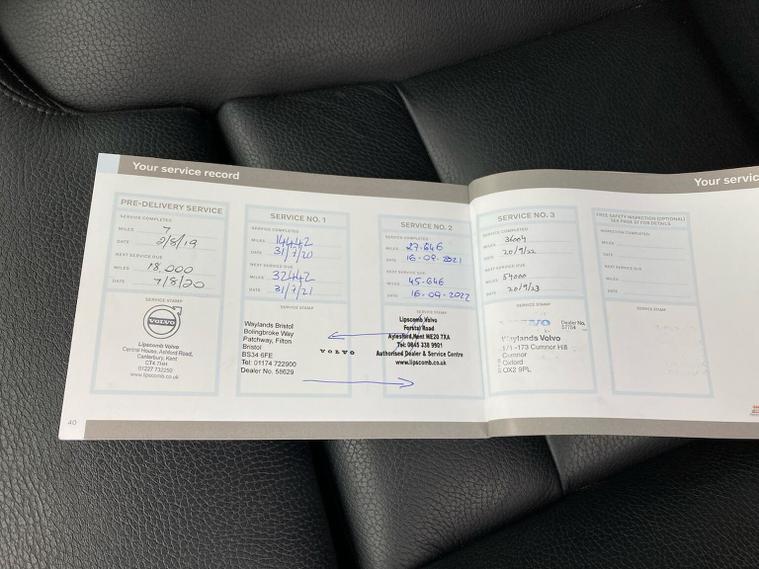 Your service record
Your servic
PRE-DELIVERY SERVICE
SERVICE COMPLETED
MILES 7
DATE 2/8/19
NEXT SERVICE DUE
MILES 18,000
DATE 7/8/20
SERVICE STAMP
VOLVO
Lipscomb Volvo
Central House, Ashford Road,
Canterbury, Kent
CT4 7HH
01227 732250
www.lipscomb.co.uk
SERVICE NO. 1
SERVICE COMPLETED
MILES 14442
DATE 31/7/20
NEXT SERVICE DUE
MILES 32442
DATE 31/7/21
SERVICE STAMP
Waylands Bristol
Bolingbroke Way
Patchway, Filton
Bristol
BS34 6FE
Tel: 01174 722900
Dealer No. 58629
VOLVO
SERVICE NO. 2
SERVICE COMPLETED
MILES 27-646
DATE 16-09-2021
NEXT SERVICE DUE
MILES 45-646
DATE 16-09-2022
SERVICE STAMP
Lipscomb Volvo
Forstal Road
Aylesford, Kent ME20 7XA
Tel: 0845 338 9901
Authorised Dealer & Service Centre
www.lipscomb.co.uk
SERVICE NO. 3
SERVICE COMPLETED
MILES 36004
DATE 20/9/22
NEXT SERVICE DUE
MILES 54000
DATE 20/9/23
SERVICE STAMP
Dealer No.
57754
Waylands Volvo
-173 Cumnor Hill
Cumnor
Oxford
OX2 9PL
FREE SAFETY INSPECTION (OPTIONAL)
SEE PAGE 37 FOR DETAILS
INSPECTION COMPLETED
MILES
DATE
NEXT SERVICE DUE
MILES
DATE
SERVICE STAMP
40